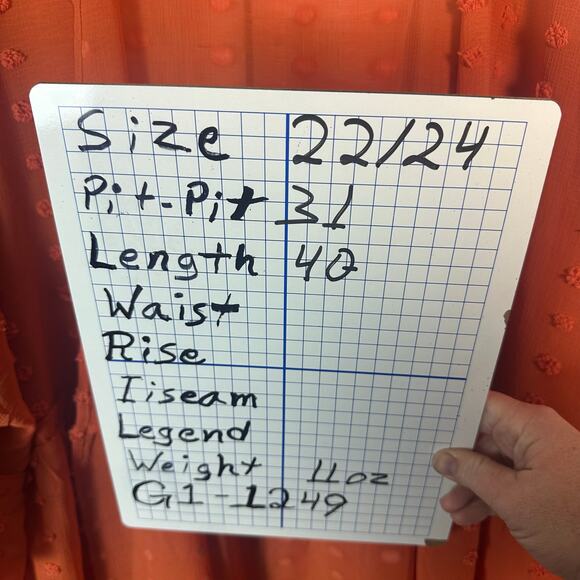 Size 22/24
Pit-Pit 31
Length 40
Waist
Rise
Iiseam
Legend
Weight 11oz
G1-1249